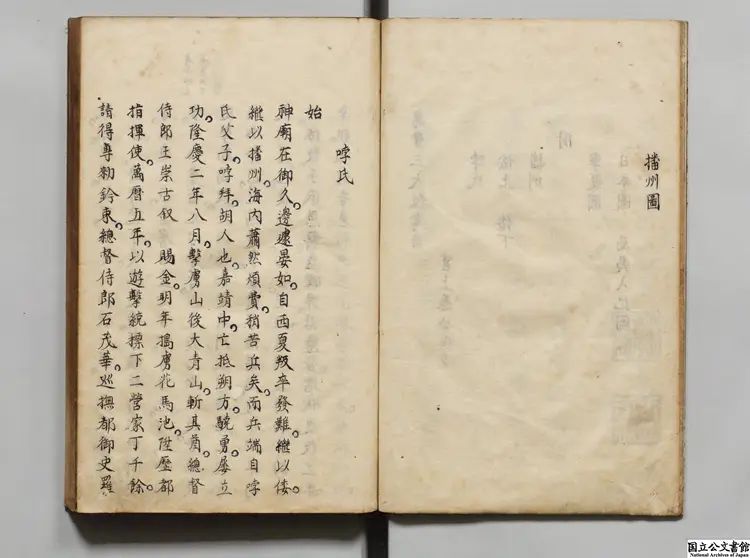 播州圖
哱氏
始
神廟在御久。邊遽晏如。自西夏叛卒發難。繼以倭。
繼以播州。海內蕭然煩費。稍苦兵矣。而兵端自哱
氏父子。哱拜。胡人也。嘉靖中。亡抵朔方。驍勇。屢立
功。隆慶二年八月。擊虜山後大青山。斬其酋。總督
侍郎王崇古叙 賜金。明年搗虜花馬池。陞歷都
指揮使。萬曆五年。以遊擊統標下二營家丁千餘。
請得專勑鈐束。總督侍郎石茂華。巡撫都御史羅
国立公文書館
National Archives of Japan